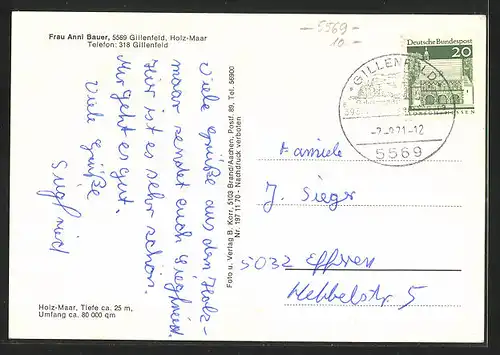 Frau Anni Bauer, 5569 Gillenfeld, Holz-Maar
Telefon: 318 Gillenfeld
Viele Grüße aus dem Holz-
maar sendet euch Siegfried.
Hier ist es sehr schön.
Mir geht es gut.
Viele Grüße
Siegfried
Holz-Maar, Tiefe ca. 25 m,
Umfang ca. 80 000 qm
Foto u. Verlag B. Korr, 5103 Brand/Aachen, Postf. 89, Tel. 56900
Nr. 197 11 70 - Nachdruck verboten
-5569-
10.-
Deutsche Bundespost
20
GILLENFELD
5569
Familie
J. Sieger
5032 Efferen
Hebbelstr. 5